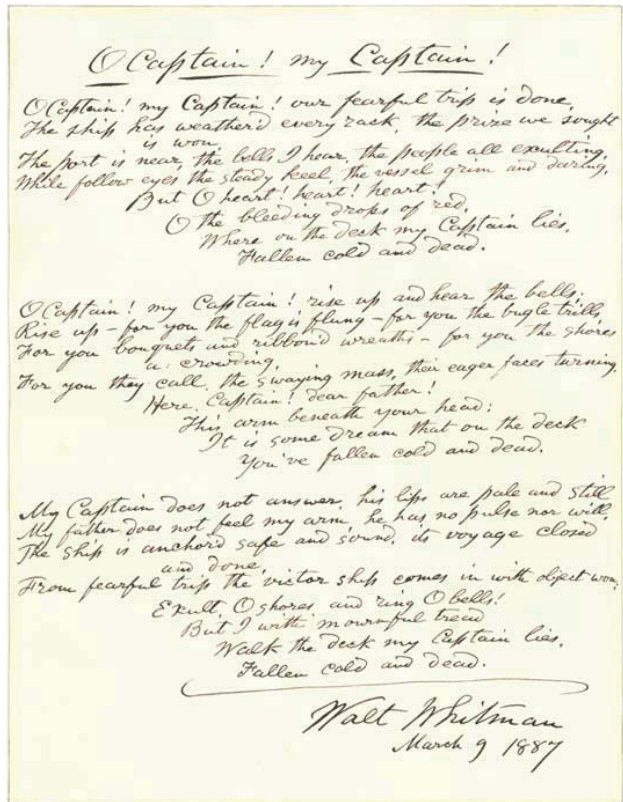 O Captain! my Captain!
O Captain! my Captain! our fearful trip is done,
The ship has weather'd every rack, the prize we sought
is won,
The port is near, the bells I hear, the people all exulting,
While follow eyes the steady keel, the vessel grim and daring,
But O heart! heart! heart!
O the bleeding drops of red,
Where on the deck my Captain lies,
Fallen cold and dead.
O Captain! my Captain! rise up and hear the bells;
Rise up – for you the flag is flung – for you the bugle trills,
For you bouquets and ribbon'd wreaths – for you the shores
a crowding,
For you they call, the swaying mass, their eager faces turning,
Here, Captain! dear father!
This arm beneath your head:
It is some dream that on the deck
You've fallen cold and dead.
My Captain does not answer, his lips are pale and still
My father does not feel my arm, he has no pulse nor will,
The ship is anchor'd safe and sound, its voyage closed
and done,
From fearful trip the victor ship comes in with object won;
Exult, O shores, and ring O bells!
But I with mournful tread
Walk the deck my Captain lies,
Fallen cold and dead.
Walt Whitman
March 9 1887